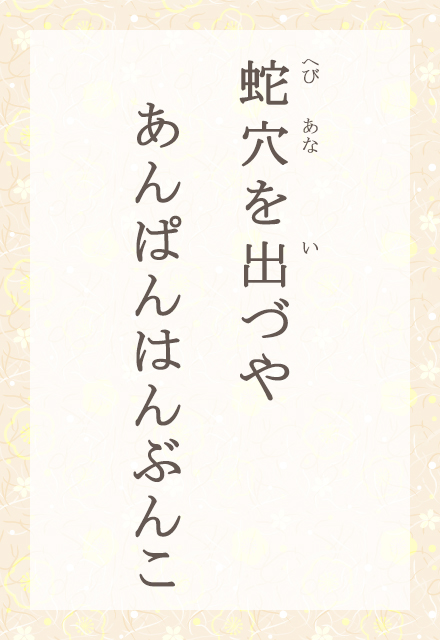 蛇穴を出づや
へび あな い
あんぱんはんぶんこ